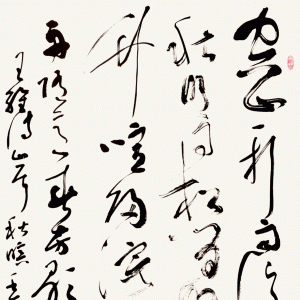 空山新雨後
秋明月松間照
竹喧歸浣
舟隨意春芳歇
王維詩山居秋暝